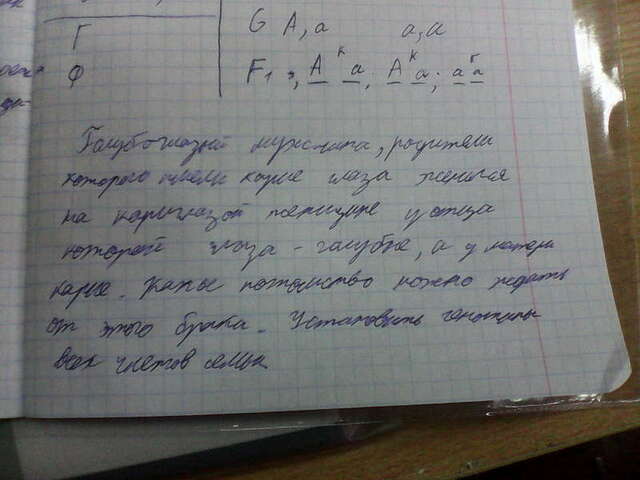 G A, a a, a
Г
Ф F₁ A к a; A к a; a г a
Голубоглазый мужчина, родители
которого имели карие глаза женился
на кареглазой женщине у отца
которой глаза - голубые, а у матери
карие. Какое потомство можно ждать
от этого брака. Установить генотипы
всех членов семьи